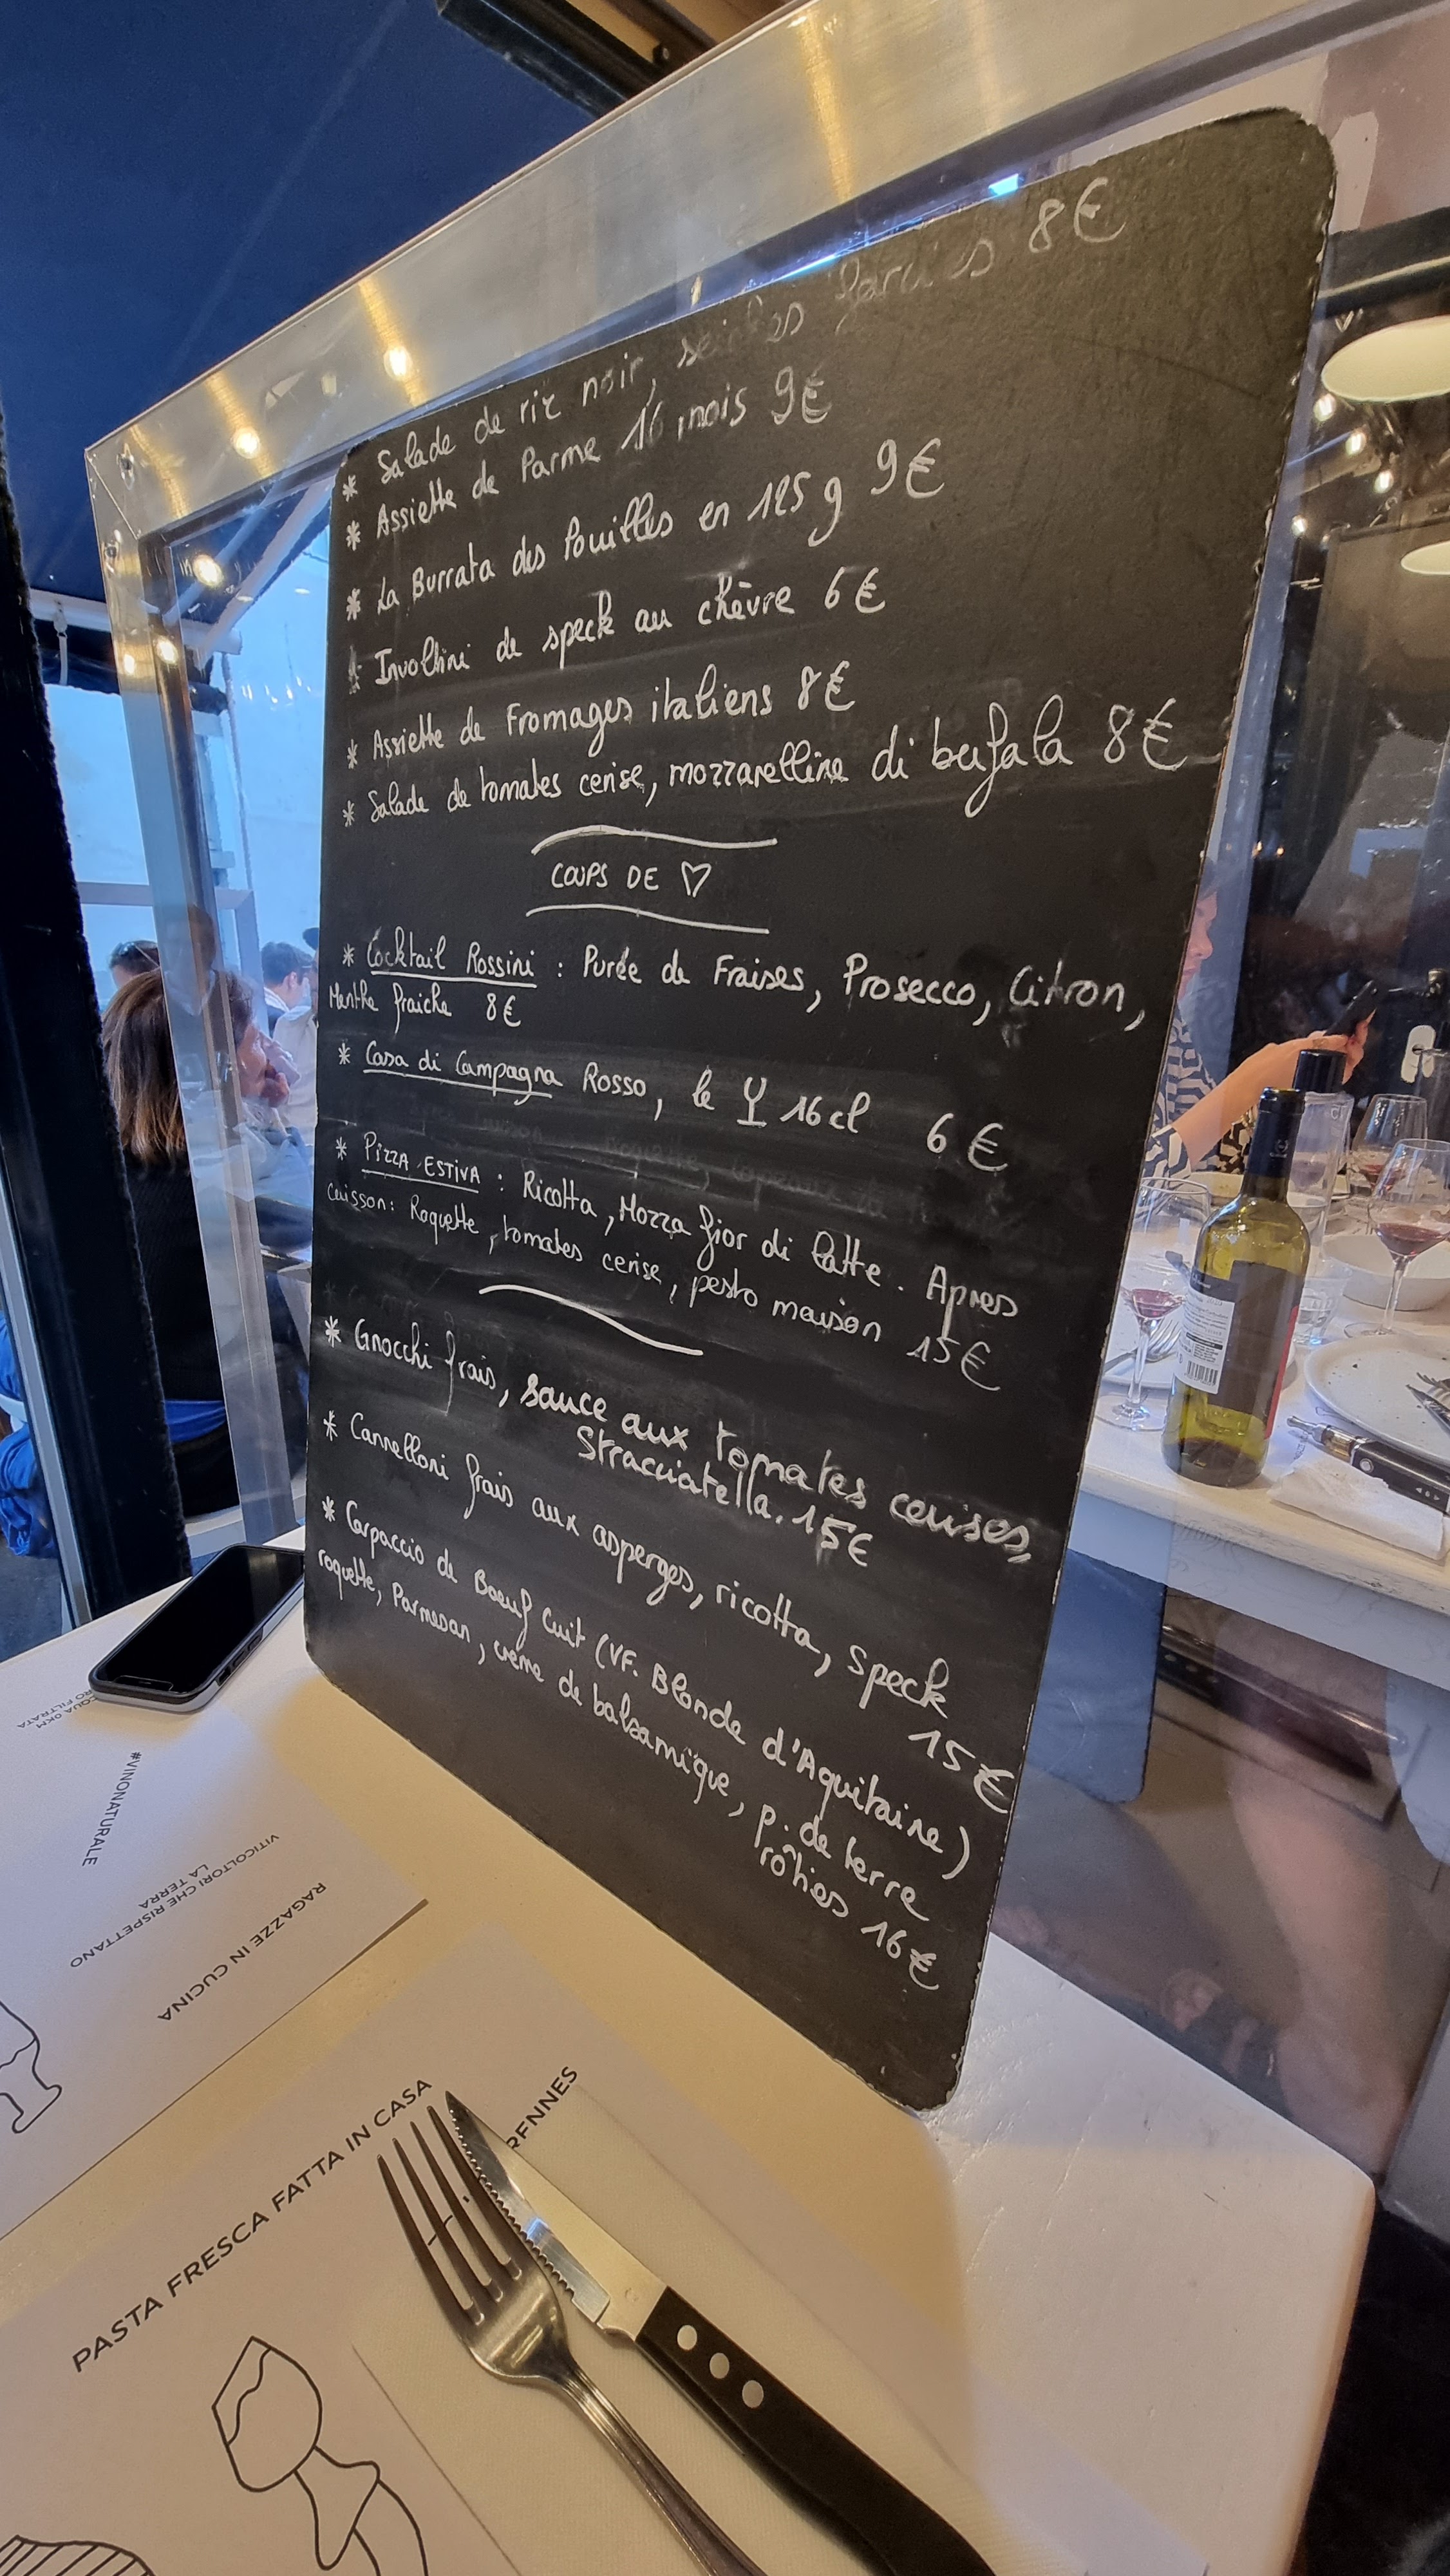 * Salade de riz noir, seiches farcies 8€
* Assiette de Parme 16 mois 9€
* La Burrata des Pouilles en 125 g 9€
* Involtini de speck au chèvre 6€
* Assiette de Fromages italiens 8€
* Salade de tomates cerise, mozzarelline di bufala 8€
COUPS DE ♡
* Cocktail Rossini : Purée de Fraises, Prosecco, Citron,
Menthe fraiche 8€
* Casa di Campagna Rosso, le 16cl 6€
* PIZZA ESTIVA : Ricotta, Mozza fior di latte. Apres
cuisson: Roquette, tomates cerise, pesto maison 15€
* Gnocchi frais, sauce aux tomates cerises,
Stracciatella. 15€
* Cannelloni frais aux asperges, ricotta, speck
15€
* Carpaccio de Boeuf Cuit (VF. Blonde d'Aquitaine)
roquette, Parmesan, crème de balsamique, p. de terre
rôties 16€
#VINONATURALE
VITICOLTORI CHE RISPETTANO
LA TERRA
RAGAZZE IN CUCINA
PASTA FRESCA FATTA IN CASA